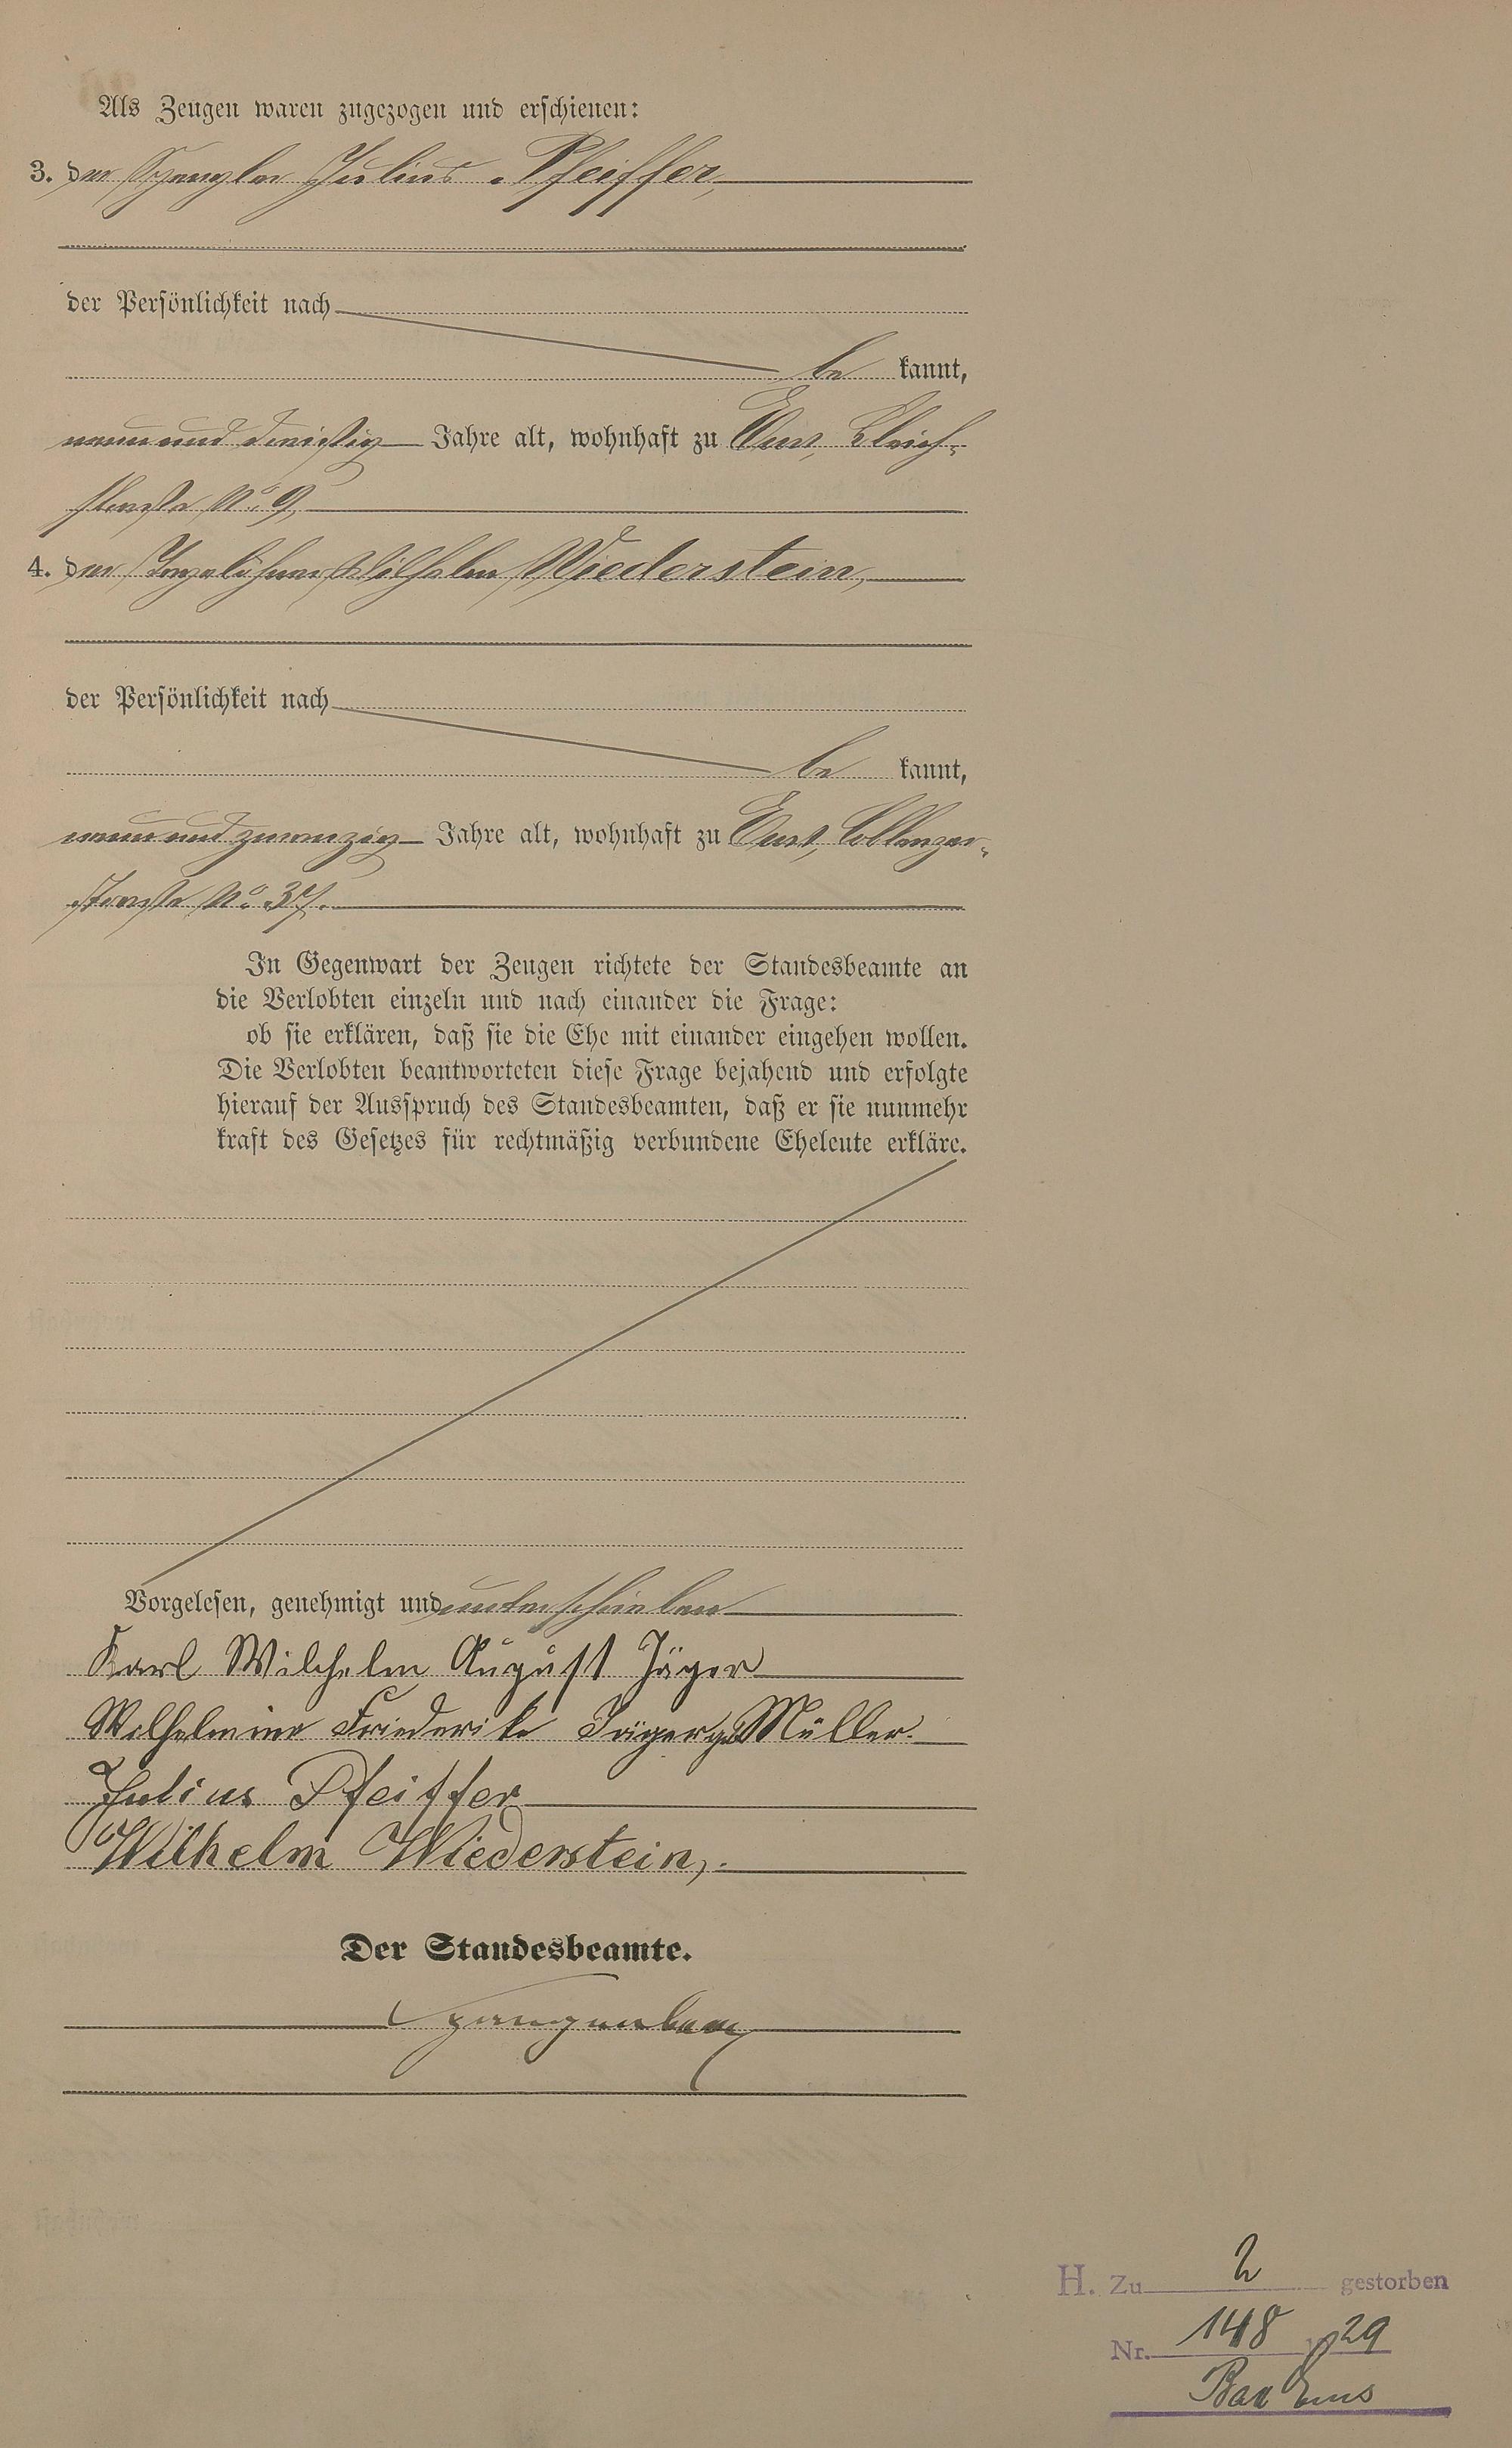 Als Zeugen waren zugezogen und erschienen:
3. der Spengler Julius Pfeiffer,
der Persönlichkeit nach
be kannt,
neun und dreißig Jahre alt, wohnhaft zu Ems, Bleich-
straße No. 9,
4. der Tagelöhner Wilhelm Wiederstein,
der Persönlichkeit nach
be kannt,
neun und zwanzig Jahre alt, wohnhaft zu Ems, Coblenzer-
straße No. 37.
In Gegenwart der Zeugen richtete der Standesbeamte an
die Verlobten einzeln und nach einander die Frage:
ob sie erklären, daß sie die Ehe mit einander eingehen wollen.
Die Verlobten beantworteten diese Frage bejahend und erfolgte
hierauf der Ausspruch des Standesbeamten, daß er sie nunmehr
kraft des Gesetzes für rechtmäßig verbundene Eheleute erkläre.
Vorgelesen, genehmigt und unterschrieben
Karl Wilhelm August Jäger
Wilhelmine Friederike Jäger geb Müller.
Julius Pfeiffer
Wilhelm Wiederstein,.
Der Standesbeamte.
Spangenberg
H. Zu 2 gestorben
Nr. 148 29
Bad Ems